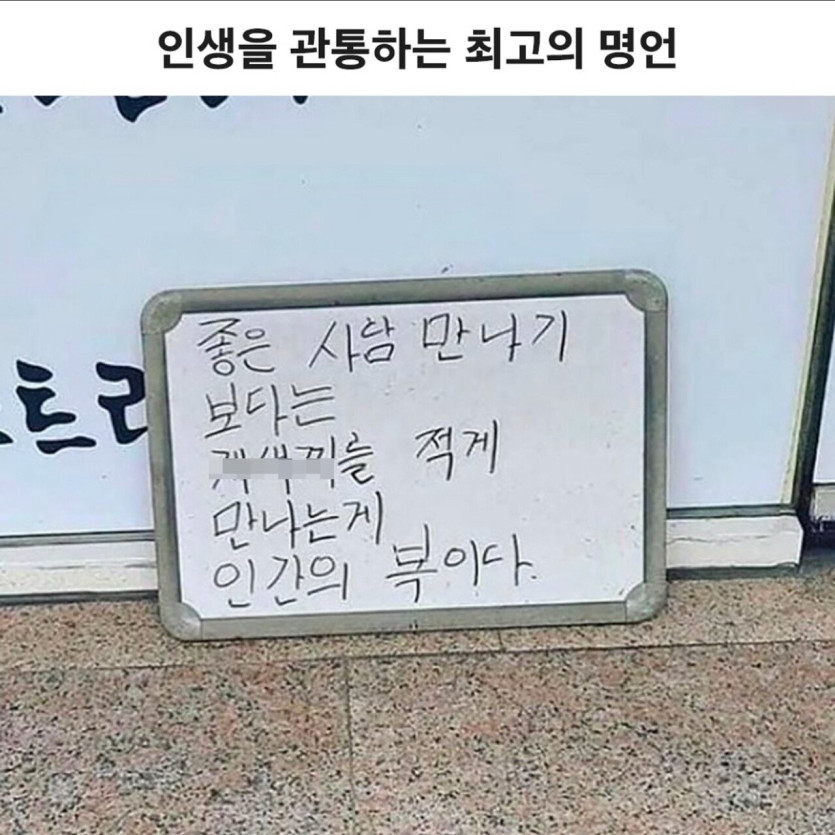 인생을 관통하는 최고의 명언
트리
좋은 사람 만나기
보다는
를 적게
만나는게
인간의 복이다.